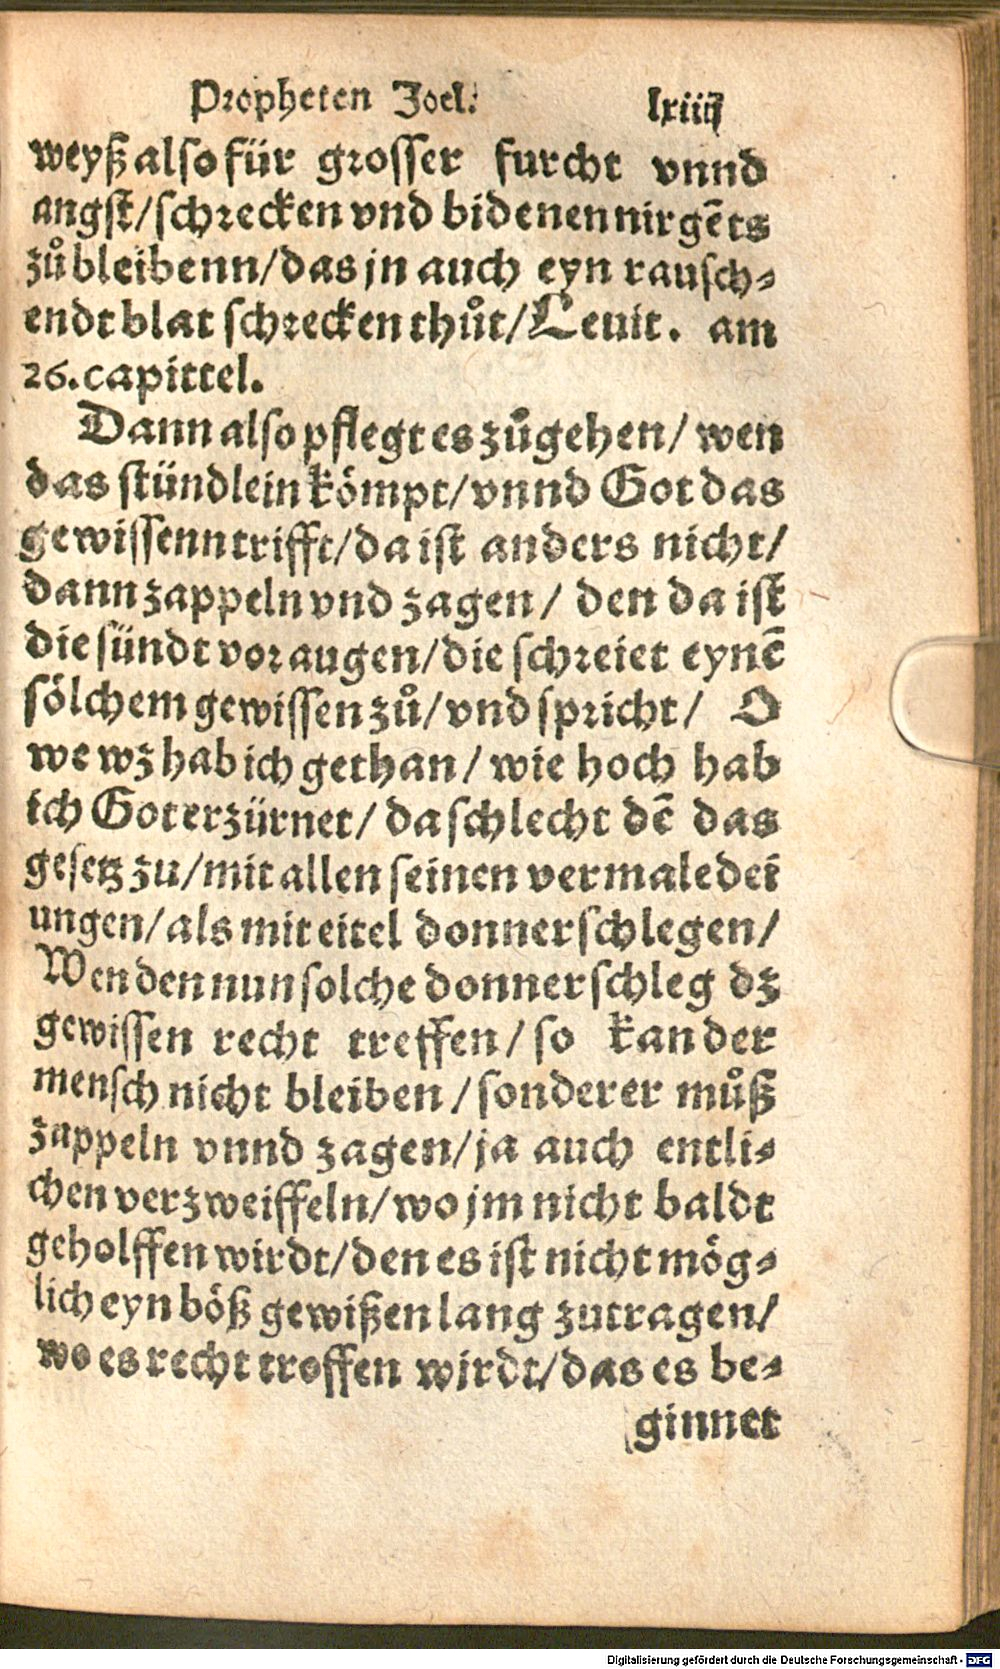 Propheten Joel. lxiiij
weyß also für grosser furcht vnnd
angst/schrecken vnd bidenen nirgēts
zů bleibenn/das jn auch eyn rausch⸗
endt blat schrecken thůt/Leuit. am
26.capittel.
Dann also pflegt es zůgehen/ wen
das stündlein kömpt/vnnd Got das
gewissenn trifft/da ist anders nicht/
dann zappeln vnd zagen/ den da ist
die sündt vor augen/die schreiet eynē
sölchem gewissen zů/vnd spricht/ O
we wz hab ich gethan/ wie hoch hab
ich Got erzürnet/ da schlecht dē das
gesetz zu/mit allen seinen vermaledei
ungen/als mit eitel donnerschlegen/
Wen den nun solche donnerschleg dz
gewissen recht treffen/ so kan der
mensch nicht bleiben/sonder er můß
zappeln vnnd zagen/ja auch entli⸗
chen verzweiffeln/wo jm nicht baldt
geholffen wirdt/den es ist nicht mög⸗
lich eyn böß gewißen lang zutragen/
wo es recht troffen wirdt/das es be⸗
ginnet
Digitalisierung gefördert durch die Deutsche Forschungsgemeinschaft - DFG